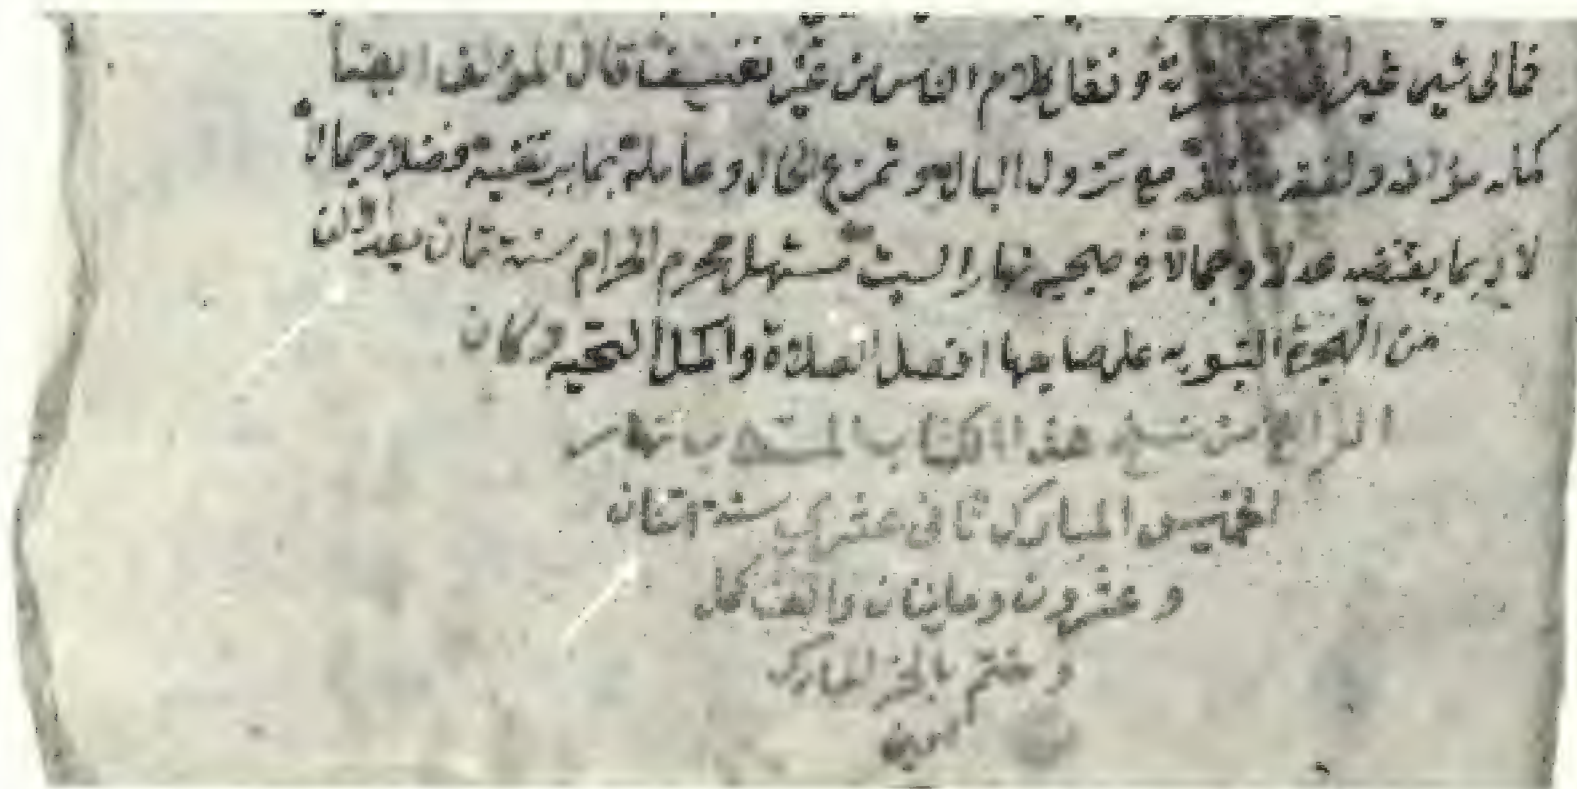 فمالى شيى غير و نقل كلام الناس من غير تغيير قال المؤلف ايضا
مؤلفه مع تزول البال و تمزع الحال و عامله بما يرتقيه فضلا وجمالا
لا بما يقتضيه عدلا وجمالا فى صبحيه نهار السبت مستهل محرم الحرام سنة ثمان بعد الالف
من الهجرة النبويه على صاحبها افضل الصلاة واكمل التحيه وكان
الفراغ من نسخ هذا الكتاب نهار
الخميس المبارك ثانى عشرى سنة اثنان
و عشرون و مايتان والف كمل
و ختم بالخير المبارك
امين